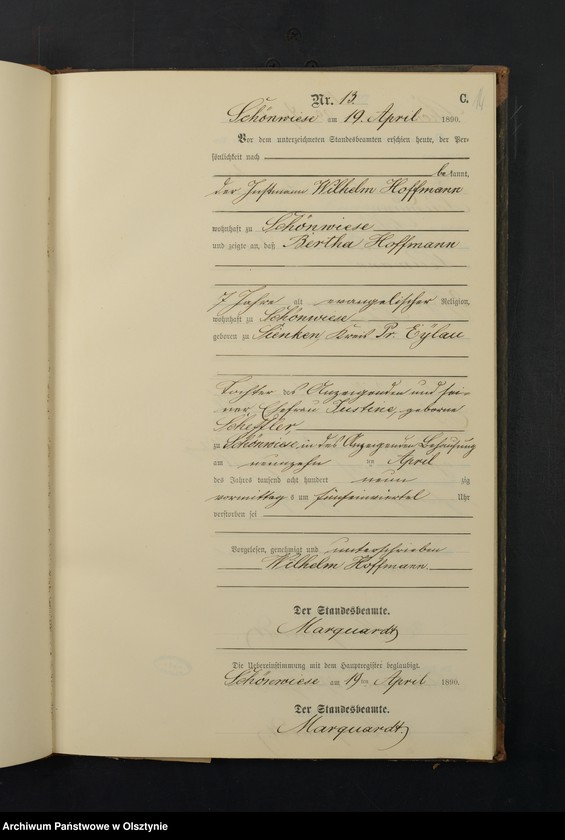 Nr. 13. C.
Schönwiese am 19. April 1890.
Vor dem unterzeichneten Standesbeamten erschien heute, der Per-
sönlichkeit nach
bekannt,
der Instmann Wilhelm Hoffmann
wohnhaft zu Schönwiese
und zeigte an, daß Bertha Hoffmann
7 Jahre alt evangelischer Religion,
wohnhaft zu Schönwiese
geboren zu Kreis Pr. Eylau
Tochter des Anzeigenden und sei-
ner Ehefrau Justine, geborene
Scheffler
zu Schönwiese, in des Anzeigenden Behausung
am neunzehn ten April
des Jahres tausend acht hundert neun zig
vormittags um fünfeinviertel Uhr
verstorben sei
Vorgelesen, genehmigt und unterschrieben
Wilhelm Hoffmann.
Der Standesbeamte.
Marquardt
Die Uebereinstimmung mit dem Hauptregister beglaubigt.
Schönwiese am 19ten April 1890.
Der Standesbeamte.
Marquardt
Archiwum Państwowe w Olsztynie